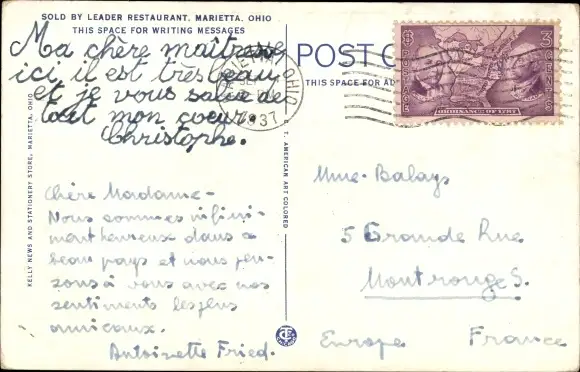 SOLD BY LEADER RESTAURANT, MARIETTA, OHIO
THIS SPACE FOR WRITING MESSAGES
Ma chère maîtresse
ici il est très beau
et je vous salue de
tout mon coeur.
Christophe.
Chère Madame -
Nous sommes infini-
ment heureux dans a
beau pays et nous pen-
sons à vous avec nos
sentiments les plus
amicaux.
Antoinette Fried.
KELLY NEWS AND STATIONERY STORE, MARIETTA, OHIO
C. T. AMERICAN ART COLORED
POST C
THIS SPACE FOR AD
MARIETTA OHIO
SEP
1937
ORDINANCE OF 1787
Mme. Balays
5 Grande Rue
Montrouge S.
Europe France